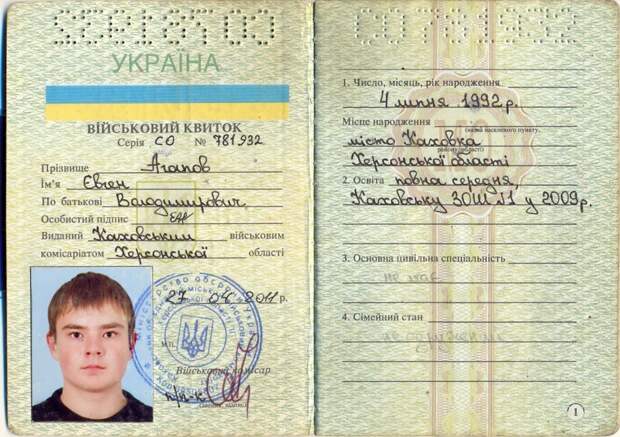 УКРАЇНА
ВІЙСЬКОВИЙ КВИТОК
Серія СО № 781932
Прізвище Агапов
Ім'я Євген
По батькові Володимирович
Особистий підпис
Виданий Каховським військовим
комісаріатом Херсонської області
27 04 2011 р.
М.П.
Військовий комісар
п/п-к
1. Число, місяць, рік народження
4 липня 1992 р.
Місце народження
місто Каховка
Херсонської області
2. Освіта повна середня,
Каховську ЗОШ №1 у 2009р.
3. Основна цивільна спеціальність
не має
4. Сімейний стан
1